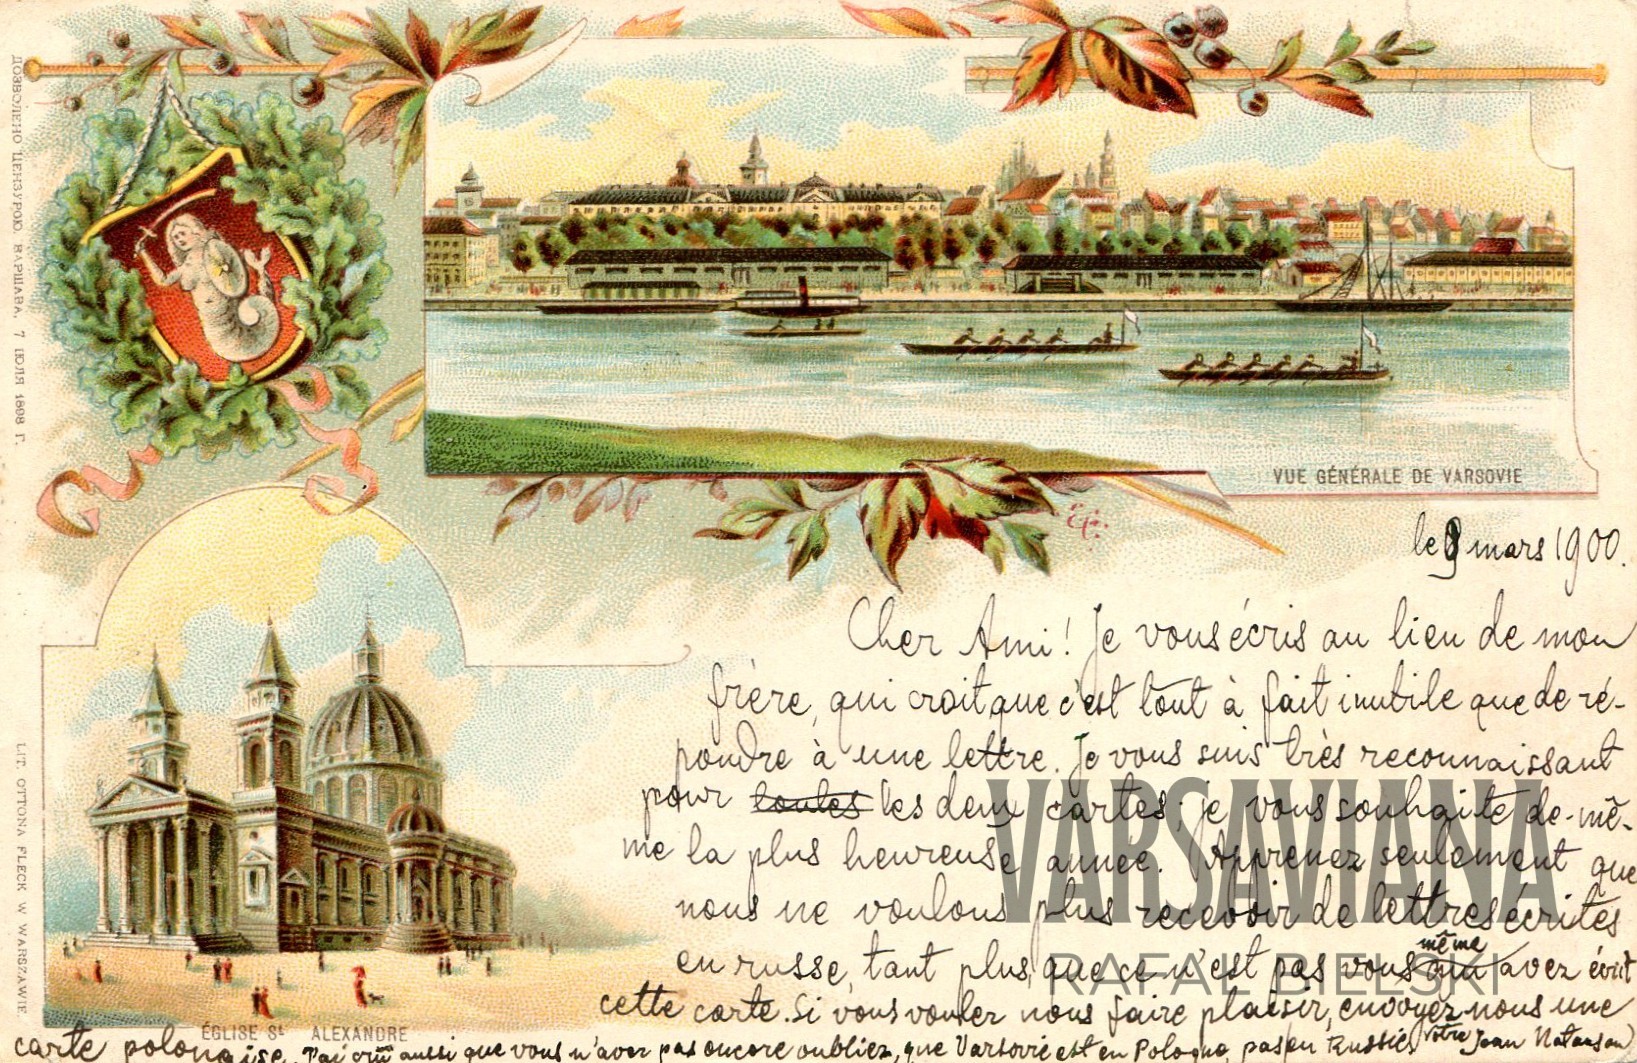 ДОЗВОЛЕНО ЦЕНЗУРОЮ. ВАРШАВА, 7 ІЮЛЯ 1898 Г.
VUE GÉNÉRALE DE VARSOVIE
le 9 mars 1900.
Cher Ami! Je vous écris au lieu de mon
frère, qui croit que c'est tout à fait inutile que de ré-
pondre à une lettre. Je vous suis très reconnaissant
pour toutes les deux cartes; je vous souhaite de-mê-
me la plus heureuse année. Apprenez seulement que
nous ne voulons plus recevoir de lettres écrites
en russe, tant plus, que ce n'est pas vous même qui avez écrit
cette carte. Si vous voulez nous faire plaisir, envoyez nous une
carte polonaise. J'ai cru aussi que vous n'avez pas encore oubliez, que Varsovie est en Pologne, pas en Russie. Votre Jean Natanson
ÉGLISE St ALEXANDRE
LIT. OTTONA FLECK W WARSZAWIE
VARSAVIANA
RAFAŁ BIELSKI